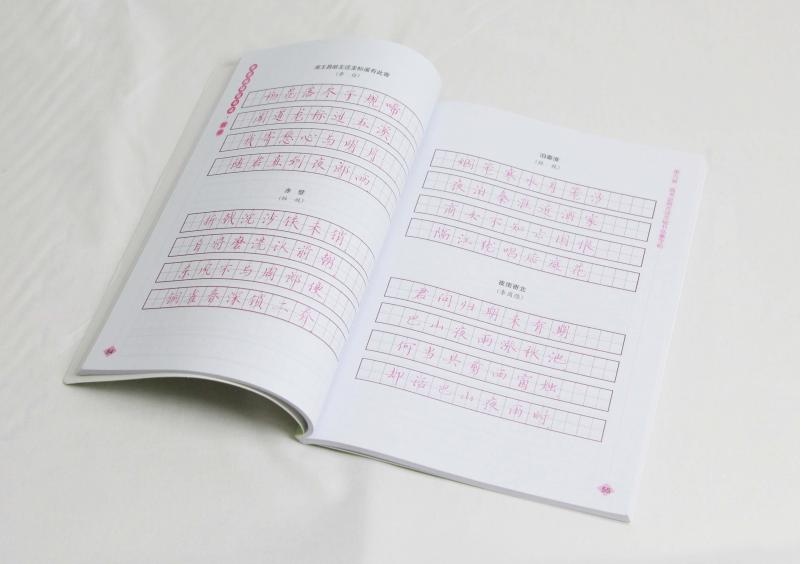 闻王昌龄左迁龙标遥有此寄
(李 白)
杨花落尽子规啼
闻道龙标过五溪
我寄愁心与明月
随君直到夜郎西
赤 壁
(杜 牧)
折戟沉沙铁未销
自将磨洗认前朝
东风不与周郎便
铜雀春深锁二乔
泊秦淮
(杜 牧)
烟笼寒水月笼沙
夜泊秦淮近酒家
商女不知亡国恨
隔江犹唱后庭花
夜雨寄北
(李商隐)
君问归期未有期
巴山夜雨涨秋池
何当共剪西窗烛
却话巴山夜雨时
55